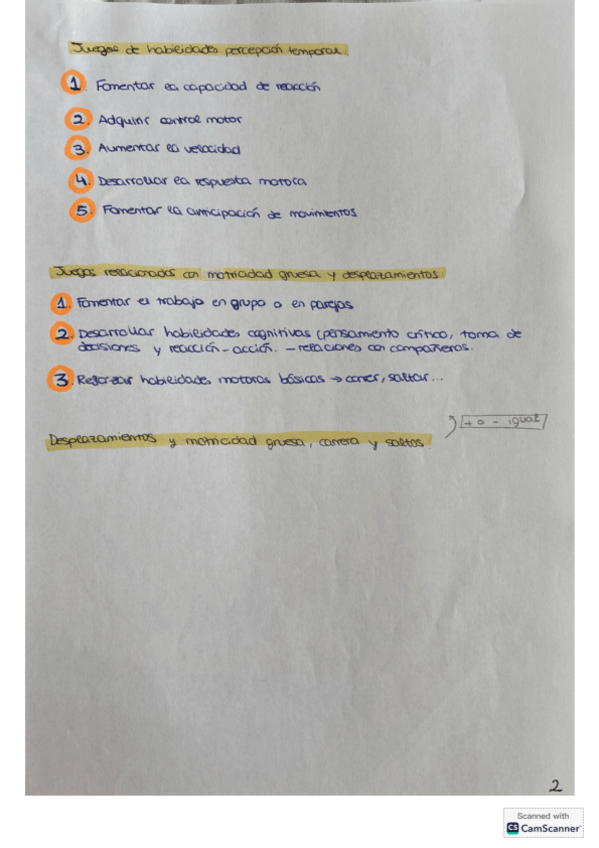 Juegos de habilidades percepción temporal.
1. Fomentar la capacidad de reacción
2. Adquirir control motor
3. Aumentar la velocidad
4. Desarrollar la respuesta motora
5. Fomentar la anticipación de movimientos
Juegos relacionados con motricidad gruesa y desplazamientos
1. Fomentar el trabajo en grupo o en parejas
2. Desarrollar habilidades cognitivas (pensamiento crítico, toma de
decisiones y reacción-acción. - relaciones con compañeros.
3. Reforzar habilidades motoras básicas → correr, saltar...
+ o - igual
Desplazamientos y motricidad gruesa, carrera y saltos.
2
Scanned with
CS CamScanner